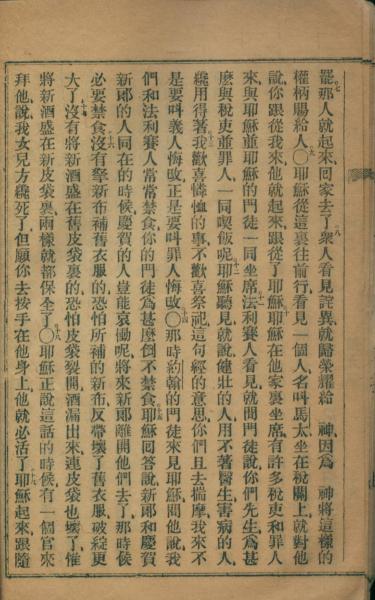 罷那人就起來回家去了衆人看見詫異就歸榮耀給 神因爲 神將這樣的
權柄賜給人〇耶穌從這裏往前行看見一個人名叫馬太坐在稅關上就對他
說你跟從我來他就起來跟從了耶穌耶穌在他家裏坐席有許多稅吏和罪人
來與耶穌並耶穌的門徒一同坐席法利賽人看見就問門徒說你們先生爲甚
麽與稅吏並罪人一同喫飯呢耶穌聽見就說健壯的人用不著醫生害病的人
纔用得著我歡喜憐恤的事不歡喜祭祀這句經的意思你們且去揣摩我來不
是要叫義人悔改正是要叫罪人悔改〇那時約翰的門徒來見耶穌問他說我
們和法利賽人常常禁食你的門徒爲甚麽倒不禁食耶穌回答說新郎和慶賀
新郎的人同在的時候慶賀的人豈能哀慟呢將來新郎離開他們去了那時候
必要禁食沒有拏新布補舊衣服的恐怕所補的新布反帶壞了舊衣服破綻更
大了沒有將新酒盛在舊皮袋裏的恐怕皮袋裂開酒漏出來連皮袋也壞了惟
將新酒盛在新皮袋裏兩樣就都保全了〇耶穌正說這話的時候有一個官來
拜他說我女兒方纔死了但願你去按手在他身上他就必活了耶穌起來跟隨